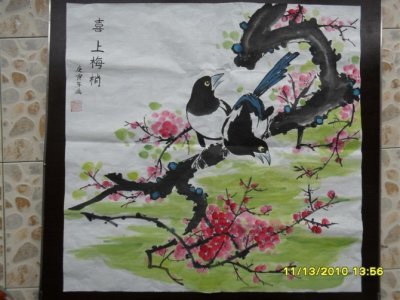 喜上梅梢
庚寅年
11/13/2010 13:56